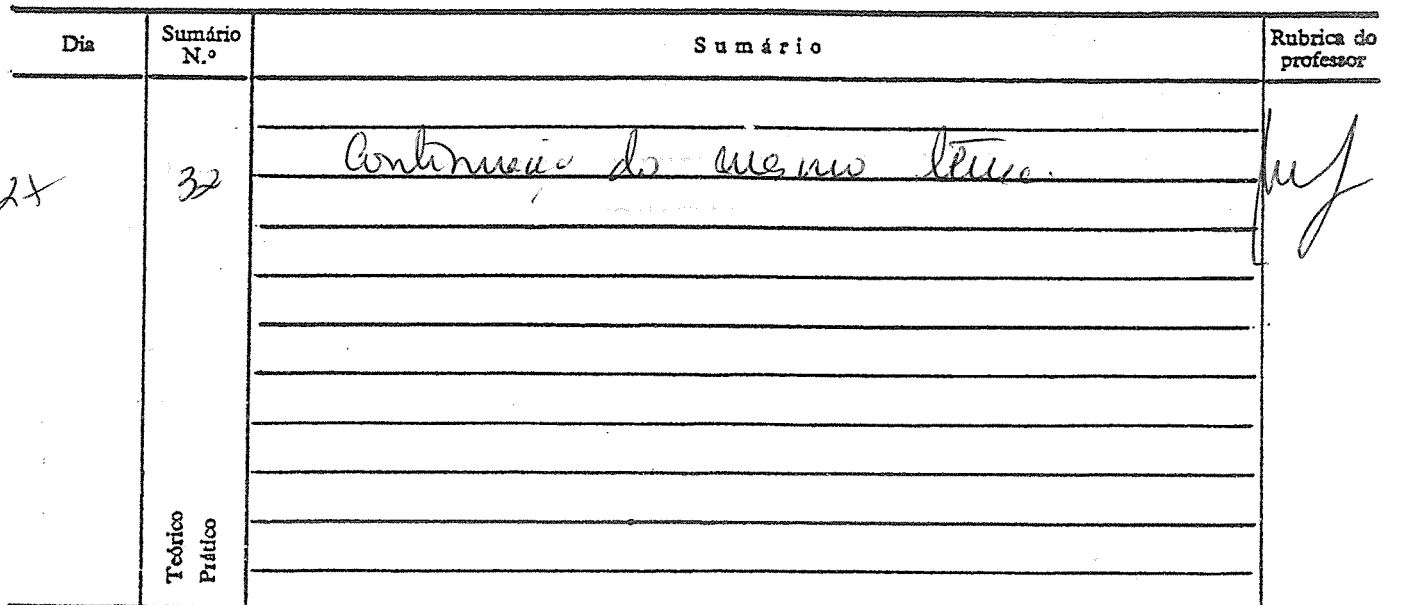 Dia Sumário N.º Sumário Rubrica do professor
27 32 Continuação do mesmo tema.
Teórico
Prático